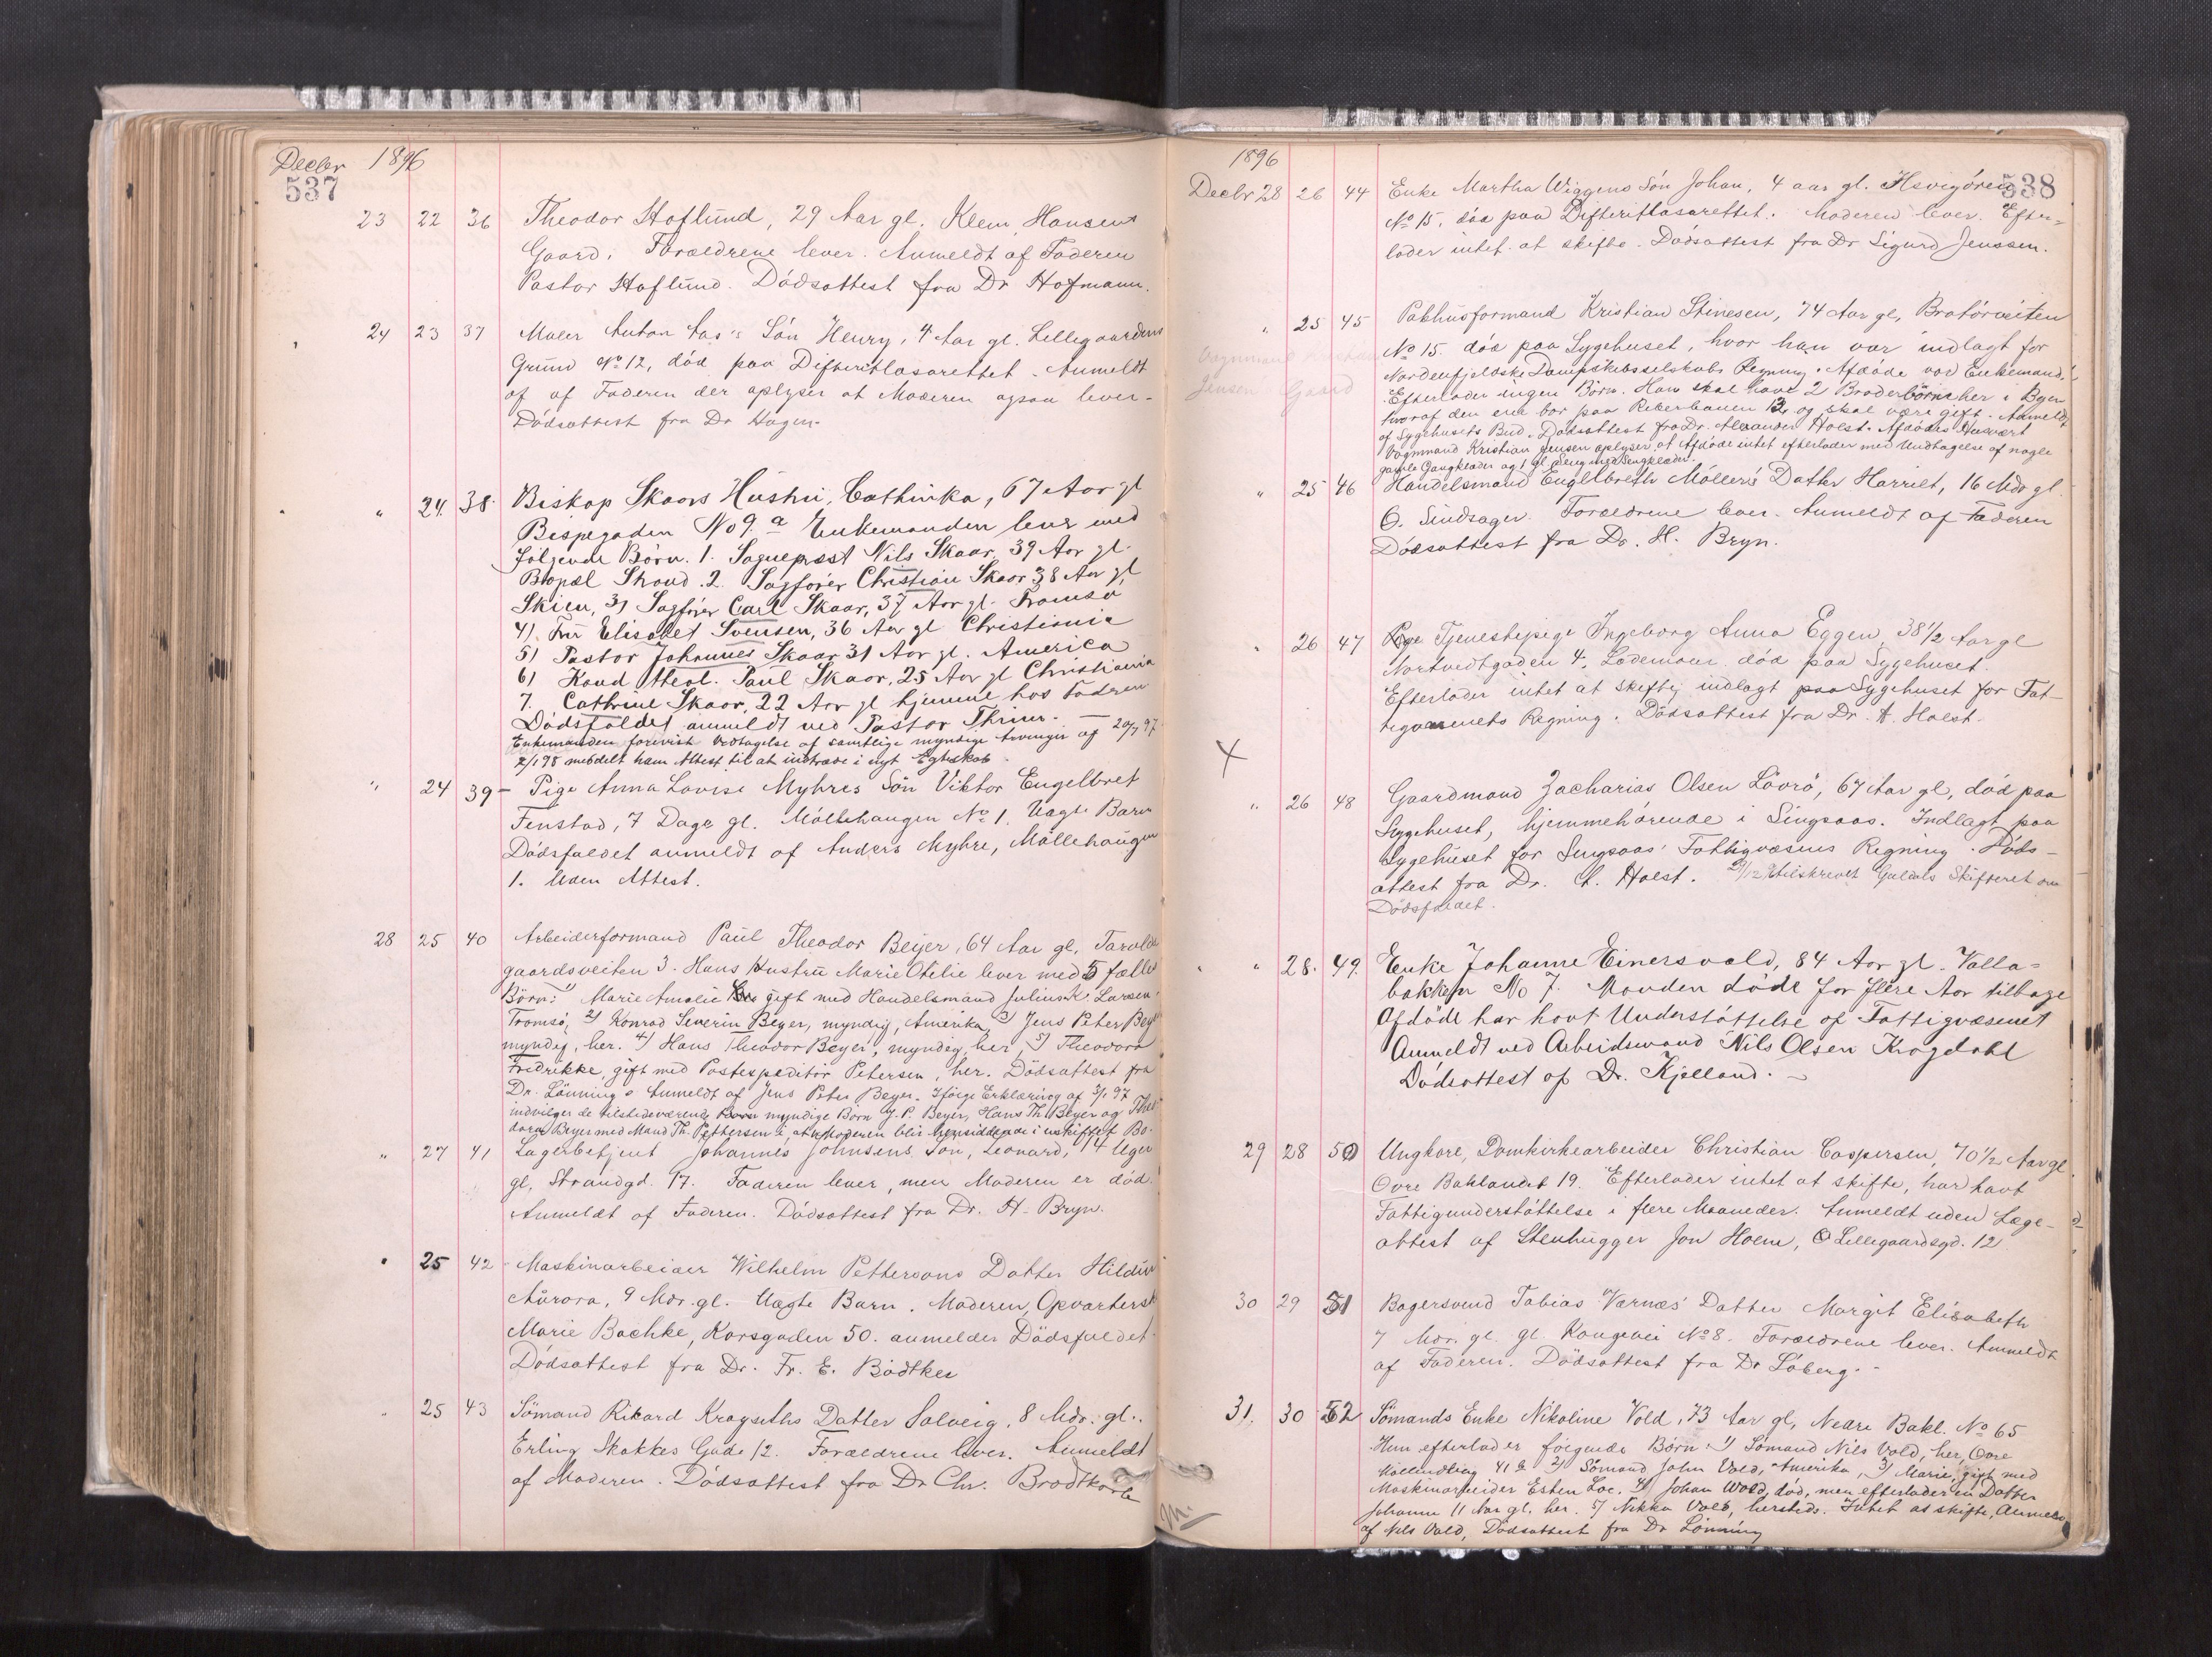 Decbr 1896
537
23 22 36 Theodor Hoflund, 29 Aar gl. Klem Hansens
Gaard. Forældrene lever. Anmeldt af Faderen
Pastor Hoflund. Dödsattest fra Dr Hofmann.
24 23 37 Maler Anton Aas's Sön Henry, 4 Aar gl. Lillegaardens
Grund No 12, död paa Difteritlasarettet. Anmeldt
af af Faderen der oplyser at Moderen ogsaa lever.
Dödsattest fra Dr Hagen.
" 24. 38. Biskop Skaars Hustru, Cathinka, 67 Aar gl
Bispegaden No 9a Enkemanden lever med
följende Börn. 1. Sognepræst Nils Skaar, 39 Aar gl.
Bopæl Strand. 2. Sagförer Christian Skaar 38 Aar gl
Skien, 3) Sagförer Carl Skaar, 37 Aar gl. Tromsö
4). Fru Elisabet Svensen, 36 Aar gl Christiania
5) Pastor Johannes Skaar 31 Aar gl. America
6) Kand theol. Paul Skaar, 25 Aar gl Christiania
7. Cathrine Skaar, 22 Aar gl hjemme hos Faderen
Dödsfaldet anmeldt ved Pastor Thrim. —
Enkemanden forevist Vedtagelse af samtlige myndige Arvinger af 20/7 97.
2/1 98 meddelt ham Attest til at indtræde i nyt Egteskab
" 24 39 - Pige Anna Lovise Myhres Sön Viktor Engelbret
Fenstad, 7 Dage gl. Möllehaugen No 1. Uægte Barn
Dödsfaldet anmeldt af Anders Myhre, Möllehaugen
1. Uden Attest.
28 25 40 Arbeiderformand Paul Theodor Beyer, 64 Aar gl, Tarald
gaardsveiten 3. Hans Hustru Marie Otelie lever med 5 fælles
Börn: 1) Marie Amalie gift med Handelsmand Julius K. Larsen
Tromsö, 2) Konrad Severin Beyer, myndig, Amerika, 3) Jens Peter Beyer
myndig, her. 4) Hans Theodor Beyer, myndig, her, 5) Theodora
Fredrikke, gift med Postexpeditör Petersen, her. Dödsattest fra
Dr. Lönning. Anmeldt af Jens Peter Beyer. Ifölge Erklæring af 3/1 97
indvilger de tilstedeværende myndige Börn J. P. Beyer, Hans Th. Beyer og Theo
dora Beyer med Mand Th. Pettersen i, at Moderen blir hensiddende i uskiftet Bo.
" 27 41 Lagerbetjent Johannes Johnsens Sön, Leonard, 14 Uger
gl, Strandgd. 17. Faderen lever, men Moderen er död.
Anmeldt af Faderen. Dödsattest fra Dr. H. Bryn.
" 25 42 - Maskinarbeider Wilhelm Pettersens Datter Hildur
Aurora, 9 Mdr. gl. Uægte Barn. Moderen, Opvarterske
Marie Bachke, Korsgaden 50. anmelder Dödsfaldet
Dödsattest fra Dr. Fr. E. Bödtker
" 25 43 Sömand Rikard Kragseths Datter Solveig, 8 Mdr. gl.
Erling Skakkes Gade 12. Forældrene lever. Anmeldt
af Moderen. Dödsattest fra Dr Chr. Brodtkorb
1896
538
Decbr 28 26 44 Enke Martha Wiggens Sön Johan, 4 aar gl. Ilsvigören
No 15, död paa Difteritlasarettet. Moderen lever. Efter-
lader intet at skifte. Dödsattest fra Dr Sigurd Jenssen.
" 25 45 Pakhusformand Kristian Stinesen, 74 Aar gl, Bratörveiten
No 15. död paa Sygehuset, hvor han var indlagt for
Nordenfjeldske Dampskibsselskabs Regning. Afdöde var Enkemand.
Efterlader ingen Börn. Han skal have 2 Broderbörn her i Byen
hvoraf den ene bor paa Reberbanen 13, og skal være gift. Anmeldt
af Sygehusets Bud. Dödsattest fra Dr. Alexander Holst. Afdödes Husvært
Vognmand Kristian Jensen oplyser, at Afdöde intet efterlader med Undtagelse af nogle
gamle Gangklæder og 1 gl. Seng med Sengklæder.
Vognmand Kristian
Jensen Gaard
" 25 46 Handelsmand Englbreth Möllers Datter Harriet, 16 Mdr gl.
O. Sindsager. Forældrene lever. Anmeldt af Faderen
Dödsattest fra Dr. H. Bryn.
" 26 47 Tjenestepige Ingeborg Anna Eggen, 38 1/2 Aar gl
Nortvedtgaden 4, Lademoen. död paa Sygehuset.
Efterlader intet at skifte, indlagt paa Sygehuset for Fat-
tigvæsenets Regning. Dödsattest fra Dr. A. Holst.
X
" 26 48 Gaardmand Zacharias Olsen Lövrö, 67 Aar gl, död paa
Sygehuset, hjemmehörende i Singsaas. Indlagt paa
Sygehuset for Singsaas Fattigvæsens Regning. Döds-
attest fra Dr. A. Holst. 29/12 tilskrevet Guldals Skifteret om
Dödsfaldet.
" 28. 49. Enke Johanne Einersvold, 84 Aar gl. Valla-
bakken No 7. Manden döde for flere Aar tilbage
Afdöde har havt Understöttelse af Fattigvæsenet
Anmeldt ved Arbeidsmand Nils Olsen Krogdahl
Dödsattest af Dr. Kjelland. —
29 28 50 Ungkarl, Domkirkearbeider Christian Caspersen, 70 1/2 Aar gl.
Övre Baklandet 19. Efterlader intet at skifte, har havt
Fattigunderstöttelse i flere Maaneder. Anmeldt uden Læge-
attest af Stenhugger Jon Hoem, Ö Lillegaardsgd. 12
30 29 51 Bagersvend Tobias Værnæs' Datter Margit Elisabeth
7 Mdr. gl. gl. Kongevei No 8. Forældrene lever. Anmeldt
af Faderen. Dödsattest fra Dr Löberg. -
31. 30 52 Sömands Enke Nikoline Vold, 73 Aar gl, Nedre Bakl. No 65
Hun efterlader fölgende Börn: 1) Sömand Nils Vold, her, Övre
Möllenberg 41 b 2) Sömand John Vold, Amerika, 3) Marie, gift med
Maskinarbeider Esten Loe. 4) Johan Wold, död, men efterlader en Datter
Johanne 11 Aar gl. her. 5) Nikka Vold, hersteds. Intet at skifte, Anmeldt
af Nils Vold, Dödsattest fra Dr Lönning